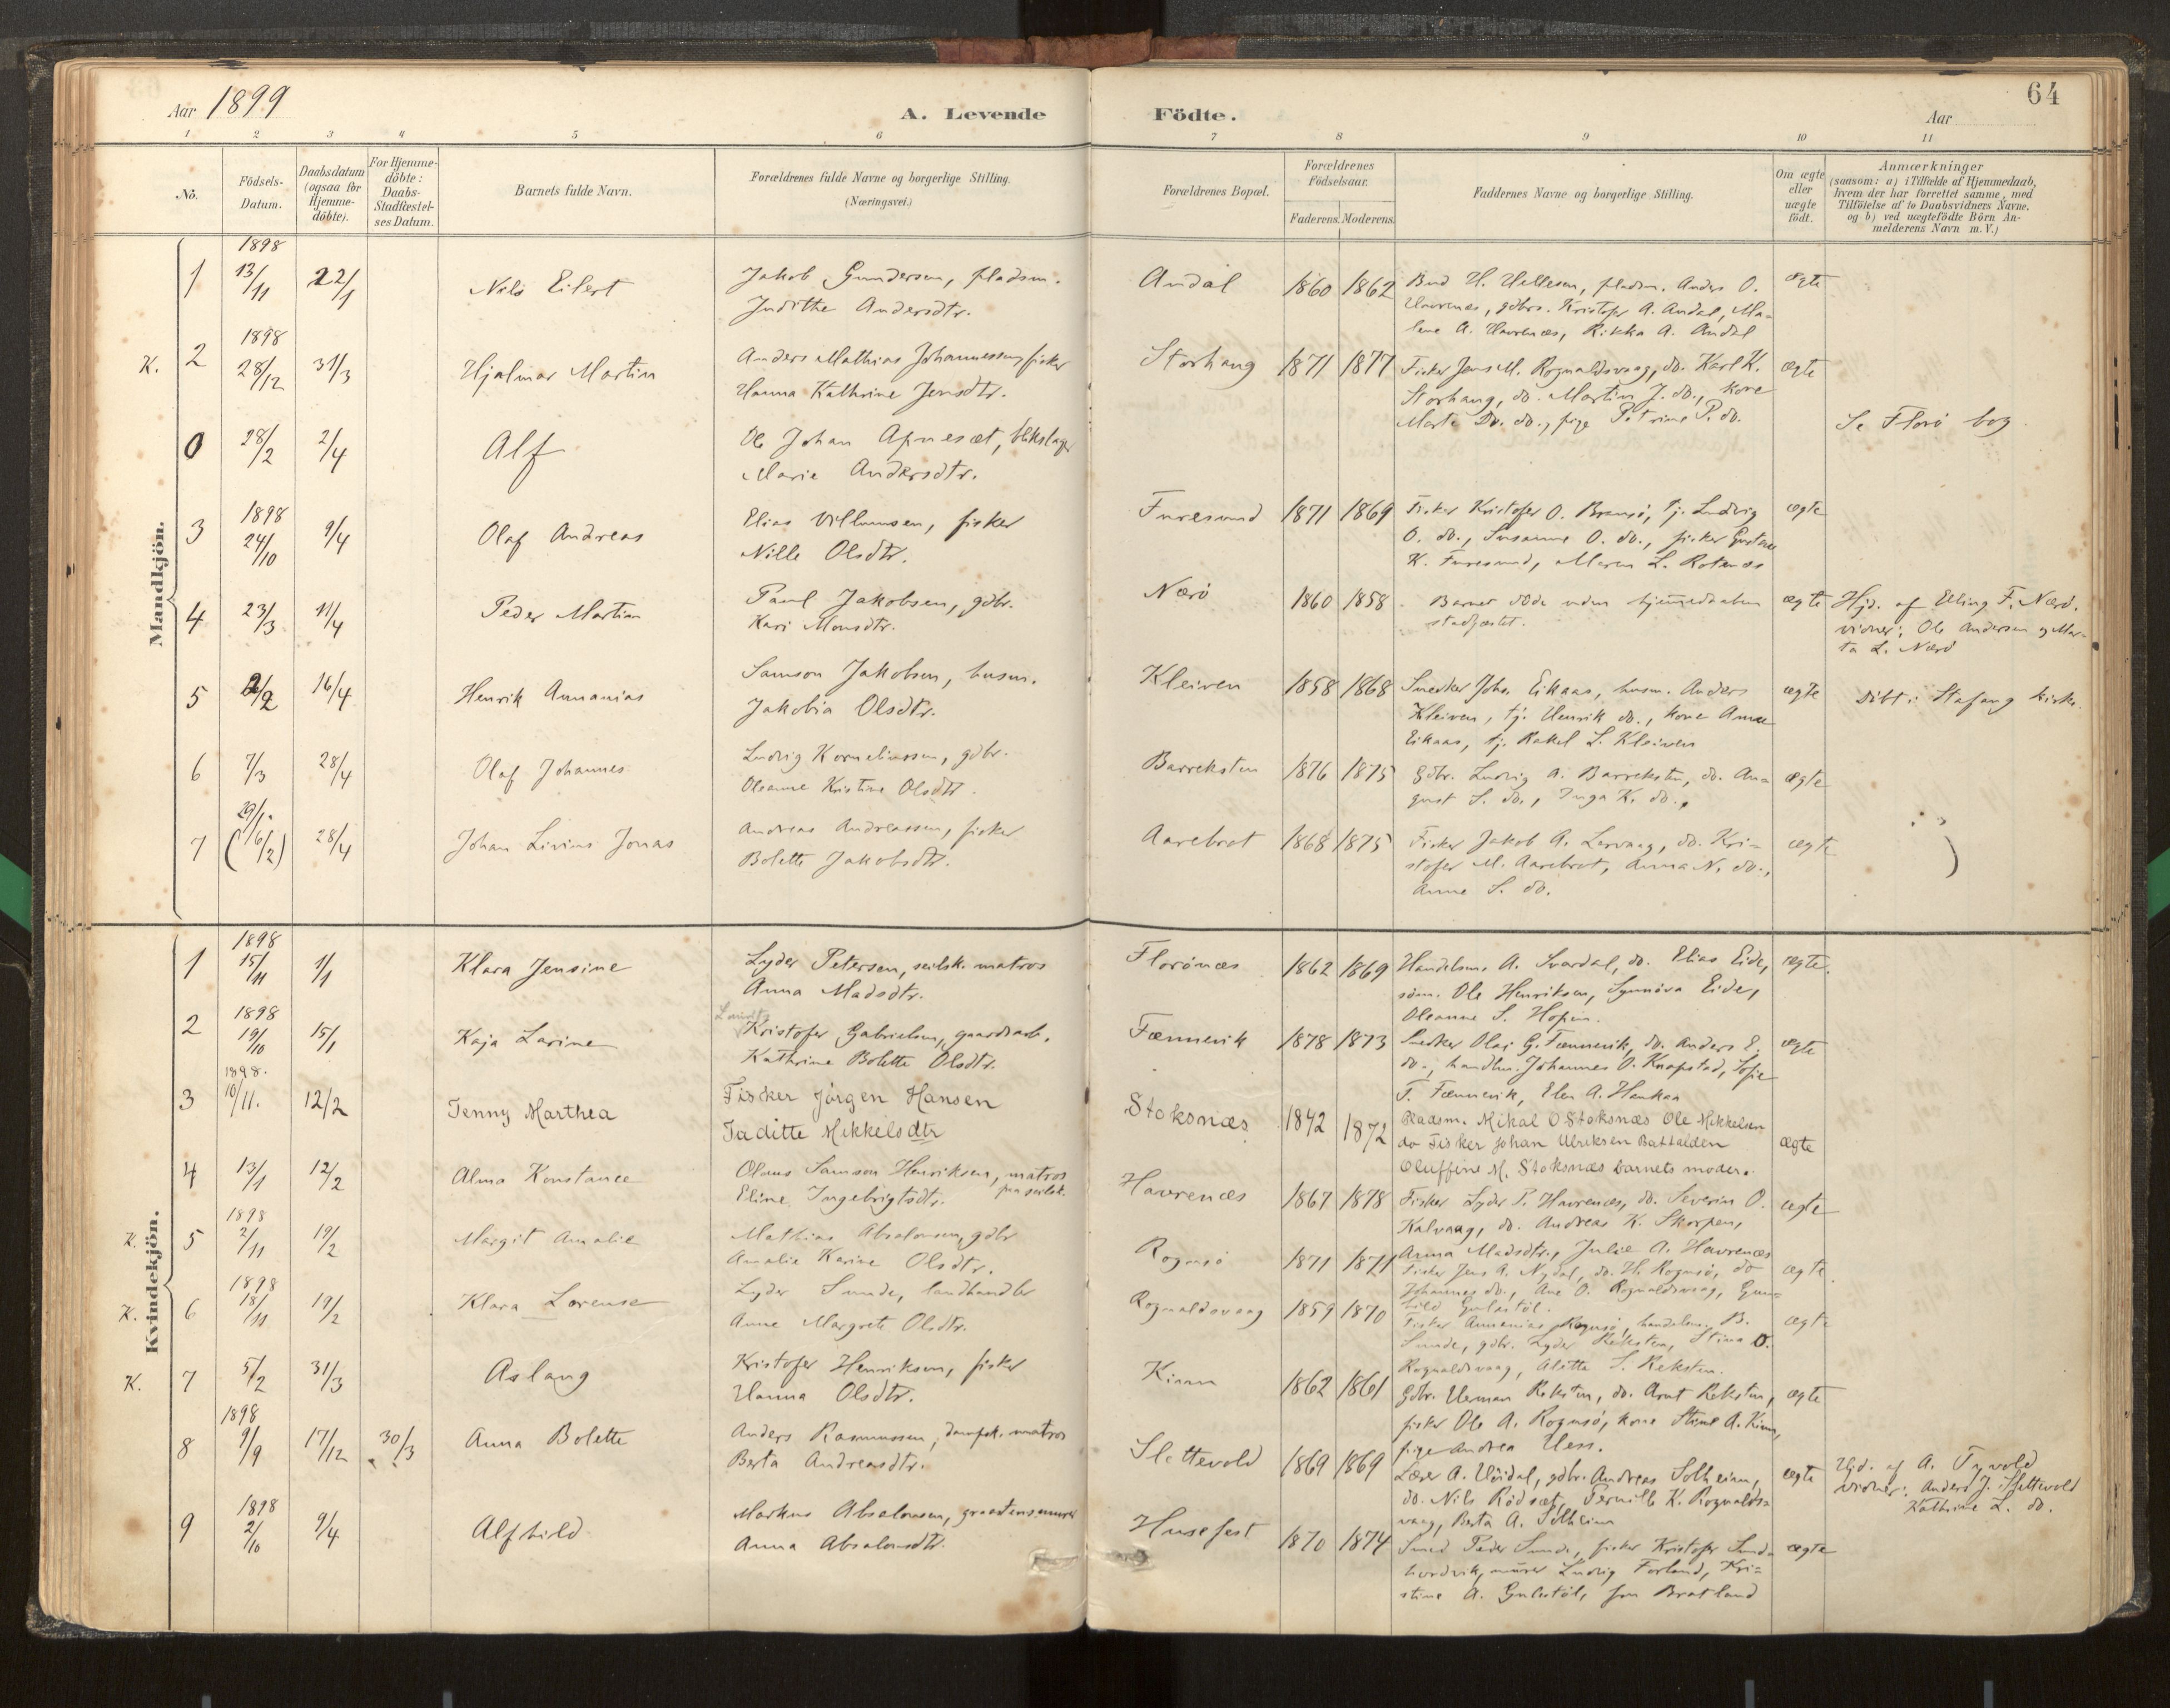 64
Aar 1899
A. Levende
Födte.
Aar
1 2 3 4 5 6 7 8 9 10 11
No.
Födsels-
Datum.
Daabsdatum
(ogsaa for
Hjemme-
döbte).
For Hjemme-
döbte:
Daabs-
Stadfæstel-
ses Datum.
Barnets fulde Navn.
Forældrenes fulde Navne og borgerlige Stilling.
(Næringsvei.)
Forældrenes Bopæl.
Forældrenes
Födselsaar.
Faderens. Moderens.
Faddernes Navne og borgerlige Stilling.
Om ægte
eller
uægte
födt.
Anmærkninger
(saasom: a) i Tilfælde af Hjemmedaab,
hvem der har forrettet samme, med
Tilföielse af to Daabsvidners Navne.
og b) ved uægtefödte Börn An-
melderens Navn m.V.)
Mandkjön.
1898
1 13/11 22/1 Nils Eilert
Jakob Gundersen, pladsm.
Judithe Andersdtr.
Andal 1860 1862
H. Hellesen, pladsm. Anders O.
Havrenæs, gdbrs. Kristofer A. Andal, Ma-
lene A. Havrenæs, Rikka A. Andal
ægte
1898
K. 2 28/12 31/3 Hjalmar Martin
Anders Mathias Johannessen, fisker
Hanna Kathrine Jensdtr.
Storhaug 1871 1877
Fisker Jens M. Rognaldsvaag, do. Karl K.
Storhaug, do. Martin J. do., kone
Marte do., pige Petrine P. do.
ægte
0 28/2 2/4 Alf
Ole Johan Apnesæt, blikslager
Marie Andersdtr.
Se Florø bog
1898
3 24/10 9/4 Olaf Andreas
Elias Villumsen, fisker
Nille Olsdtr.
Furesund 1871 1869
Fisker Kristofer O. Bransö, tj. Ludvig
O. do., Susanne O. do., fisker Gustav
K. Furesund, Maren L. Rotenæs
ægte
4 23/3 11/4 Peder Martin
Paul Jakobsen, gdbr.
Kari Monsdtr.
Nærö 1860 1858
Barnet döde uden hjemmedaaben
stadfæstet.
ægte
Hjd. af Elling F. Nærö.
vidner: Ole Andersen og Mar-
ta L. Nærö
5 2/2 16/4 Henrik Annanias
Samson Jakobsen, husm.
Jakobia Olsdtr.
Kleiven 1858 1868
Snedker Johs. Eikaas, husm. Anders
Kleiven, tj. Henrik do., kone Anna
Eikaas, tj. Rakel L. Kleiven
ægte
Döbt i Stafang kirke.
6 7/3 28/4 Olaf Johannes
Ludvig Korneliussen, gdbr.
Oleanne Kristine Olsdtr.
Barreksten 1876 1875
Gdbr. Ludvig A. Barreksten, do. Au-
gust S. do., Inga K. do.,
ægte
29/1.
7 (16/2) 28/4 Johan Livius Jonas
Andreas Andreassen, fisker
Bolette Jakobsdtr.
Aarebrot 1868 1875
Fisker Jakob A. Lervaag, do. Kri-
stofer M. Aarebrot, Anna N. do.,
Anne S. do.
ægte
Kvindekjön.
1898
1 15/11 1/1 Klara Jensine
Lyder Petersen, seilsk. matros
Anna Madsdtr.
Florönæs 1862 1869
Handelsm. A. Svardal, do. Elias Eide,
söm. Ole Henriksen, Synnöva Eide,
Oleanne S. Hopen.
ægte.
1898
2 19/10 15/1 Kaja Larine
Kristofer Gabrielsen, gaardsarb.
Kathrine Bolette Olsdtr.
Fænnevik 1878 1873
Snedker Olai G. Fænnevik, do. Anders E.
do., handlm. Johannes O. Knapstad, Sofie
T. Fænnevik, Elen A. Haukaa
ægte
1898.
3 10/11. 12/2 Jenny Marthea
Fisker Jörgen Hansen
Jaditte Mikkelsdtr
Stoksnæs 1842 1872
Pladsm. Mikal O Stoksnæs Ole Mikkelsen
do Fisker Johan Ulriksen Battalden
Oluffine M. Stoksnæs barnets moder.
ægte
4 13/1 12/2 Alma Konstance
Olaus Samson Henriksen, matros
paa seilsk.
Eline Ingebrigtsdtr.
Havrenæs 1867 1878
Fisker Lyder P. Havrenæs, do. Severin O.
Kalvaag, do. Andreas K. Skorpen,
Anna Madsdtr., Julie A. Havrenæs
ægte
1898
K. 5 2/11 19/2 Margit Amalie
Mathias Absalonsen, gdbr
Amalie Karine Olsdtr.
Rognsö 1871 1871
Fisker Jens A. Nydal, do. H. Rognsö, do
Johannes do., Ane O. Rognaldsvaag, Gun-
hild Gulestöl.
ægte
1898
K. 6 18/11 19/2 Klara Lorense
Lyder Sunde, landhandler
Anne Margrete Olsdtr.
Rognaldsvaag 1859 1870
Fisker Annanias Rognsö, handelsm. B.
Sunde, gdbr. Lyder Reksten, Stina O.
Rognaldsvaag, Alitte S. Reksten.
ægte
K. 7 5/2 31/3 Aslaug
Kristofer Henriksen, fisker
Hanna Olsdtr.
Kinn 1862 1861
Gdbr. Herman Reksten, do. Arnt Reksten,
fisker Ole A. Rognsö, kone Stine A. Kinn,
pige Andrea Hess.
ægte
1898
8 9/9 17/12 30/3 Anna Bolette
Anders Rasmussen, dampsk. matros
Berta Andreasdtr.
Slettevold 1869 1869
Lærer A. Höidal, gdbr. Andreas Solheim,
do. Nils Rödsæt, Pernille K. Rognalds-
vaag, Berta A. Solheim
ægte
Hjd. af A. Tyvold
vidner: Anders J. Slettevold
Kathrine L. do.
1898
9 2/10 9/4 Alfhild
Markus Absalonsen,
Anna Absalonsdtr.
Husefest 1870 1874
Smed Peder Sunde, fisker Kristofer Sund-
hordvik, murer Ludvig Forland, Kri-
stine A. Gulestöl, fru Bratland
ægte